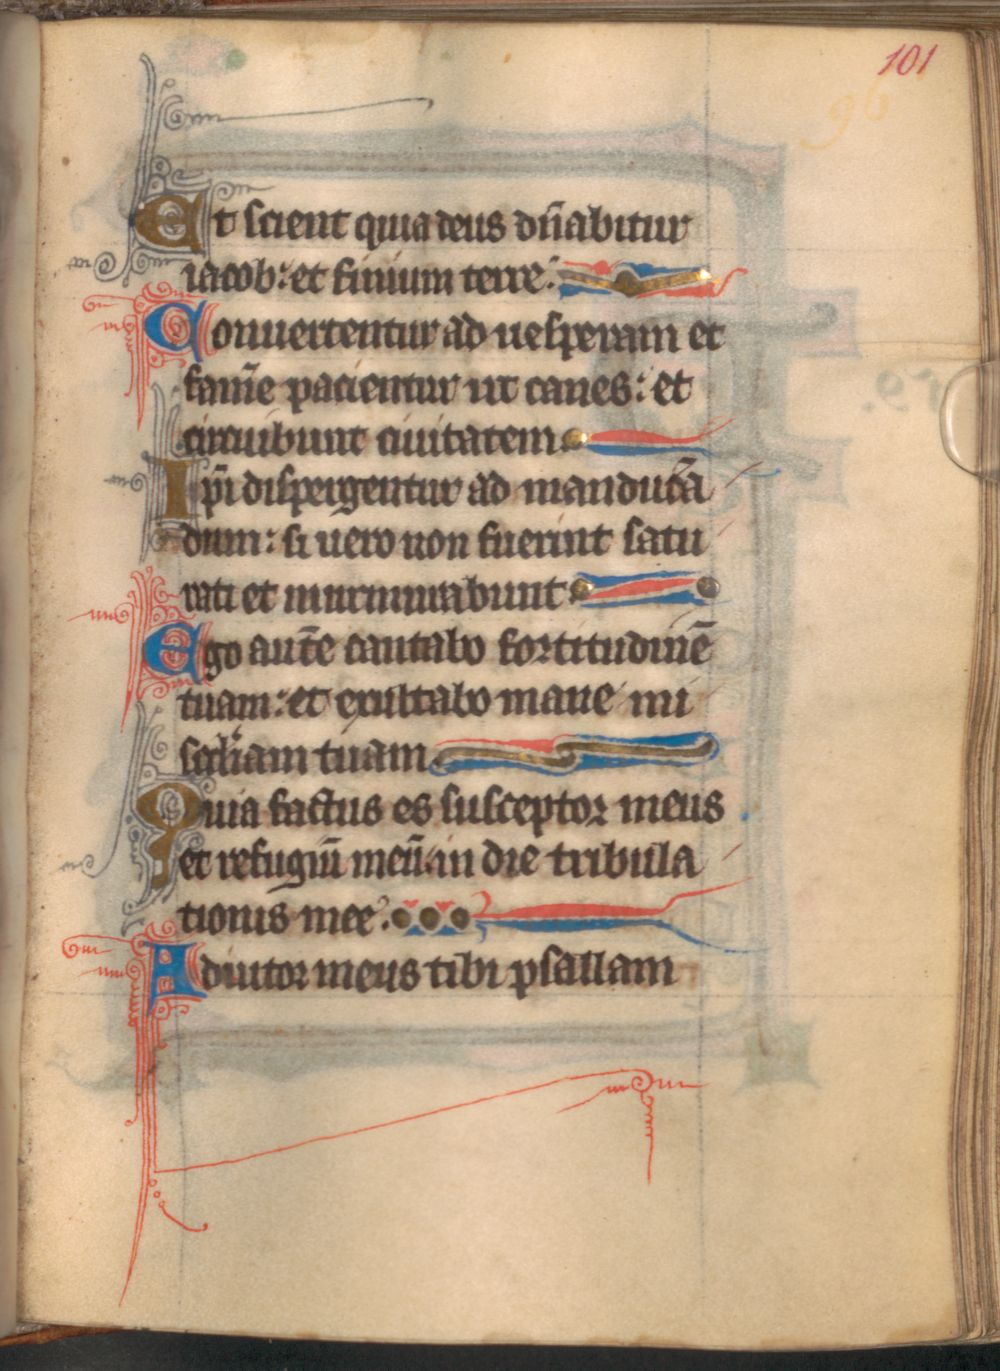 101
96
Et scient quia deus dn̄abitur
iacob: et finium terre:
Conuertentur ad uesperam et
famē pacientur ut canes: et
circuibunt ciuitatem
Ipi̅ dispergentur ad manducā
dum: si uero non fuerint satu
rati et murmurabunt
Ego autē cantabo fortitudinē
tuam: et exultabo mane mi
sc̄diam tuam
Quia factus es susceptor meus
et refugiū meū: in die tribula
tionis mee:
Adiutor meus tibi psallam